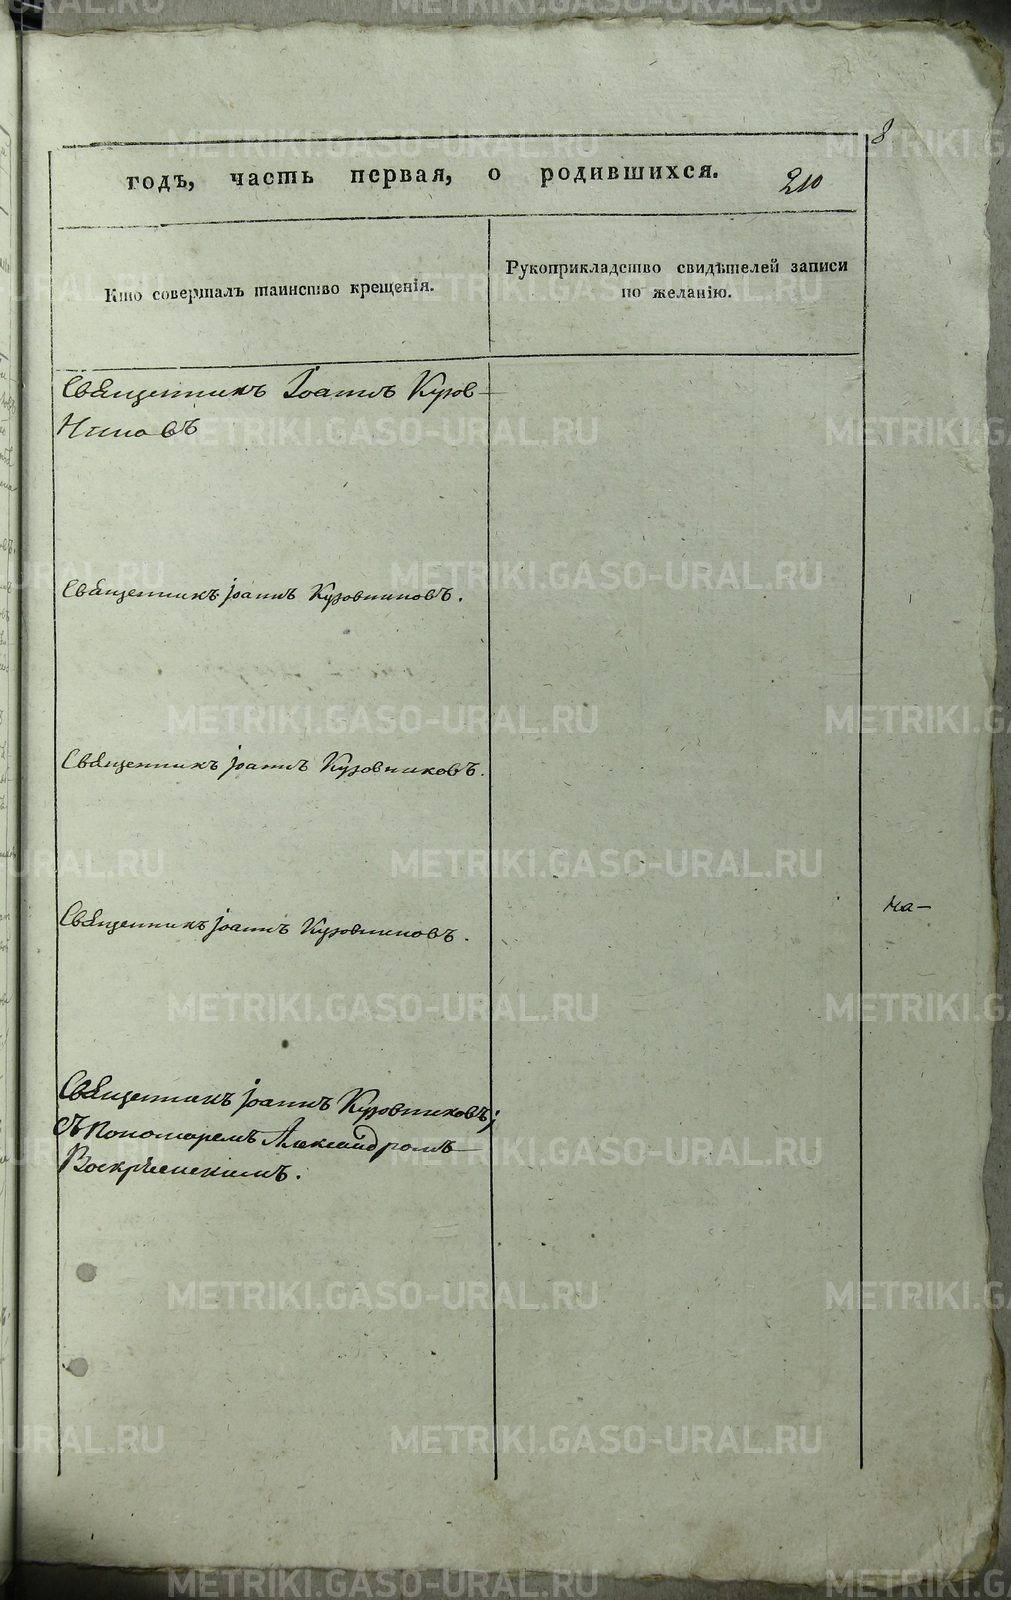 8
годъ, часть первая, о родившихся.
210
Кто совершалъ таинство крещенія.
Рукоприкладство свидѣтелей записи
по желанію.
Священникъ Іоаннъ Кузов-
никовъ
Священникъ Іоаннъ Кузовниковъ.
Священникъ Іоаннъ Кузовниковъ.
Священникъ Іоаннъ Кузовниковъ.
на-
Священникъ Іоаннъ Кузовниковъ;
съ пономаремъ Александромъ
Воскресенскимъ.
METRIKI.GASO-URAL.RU